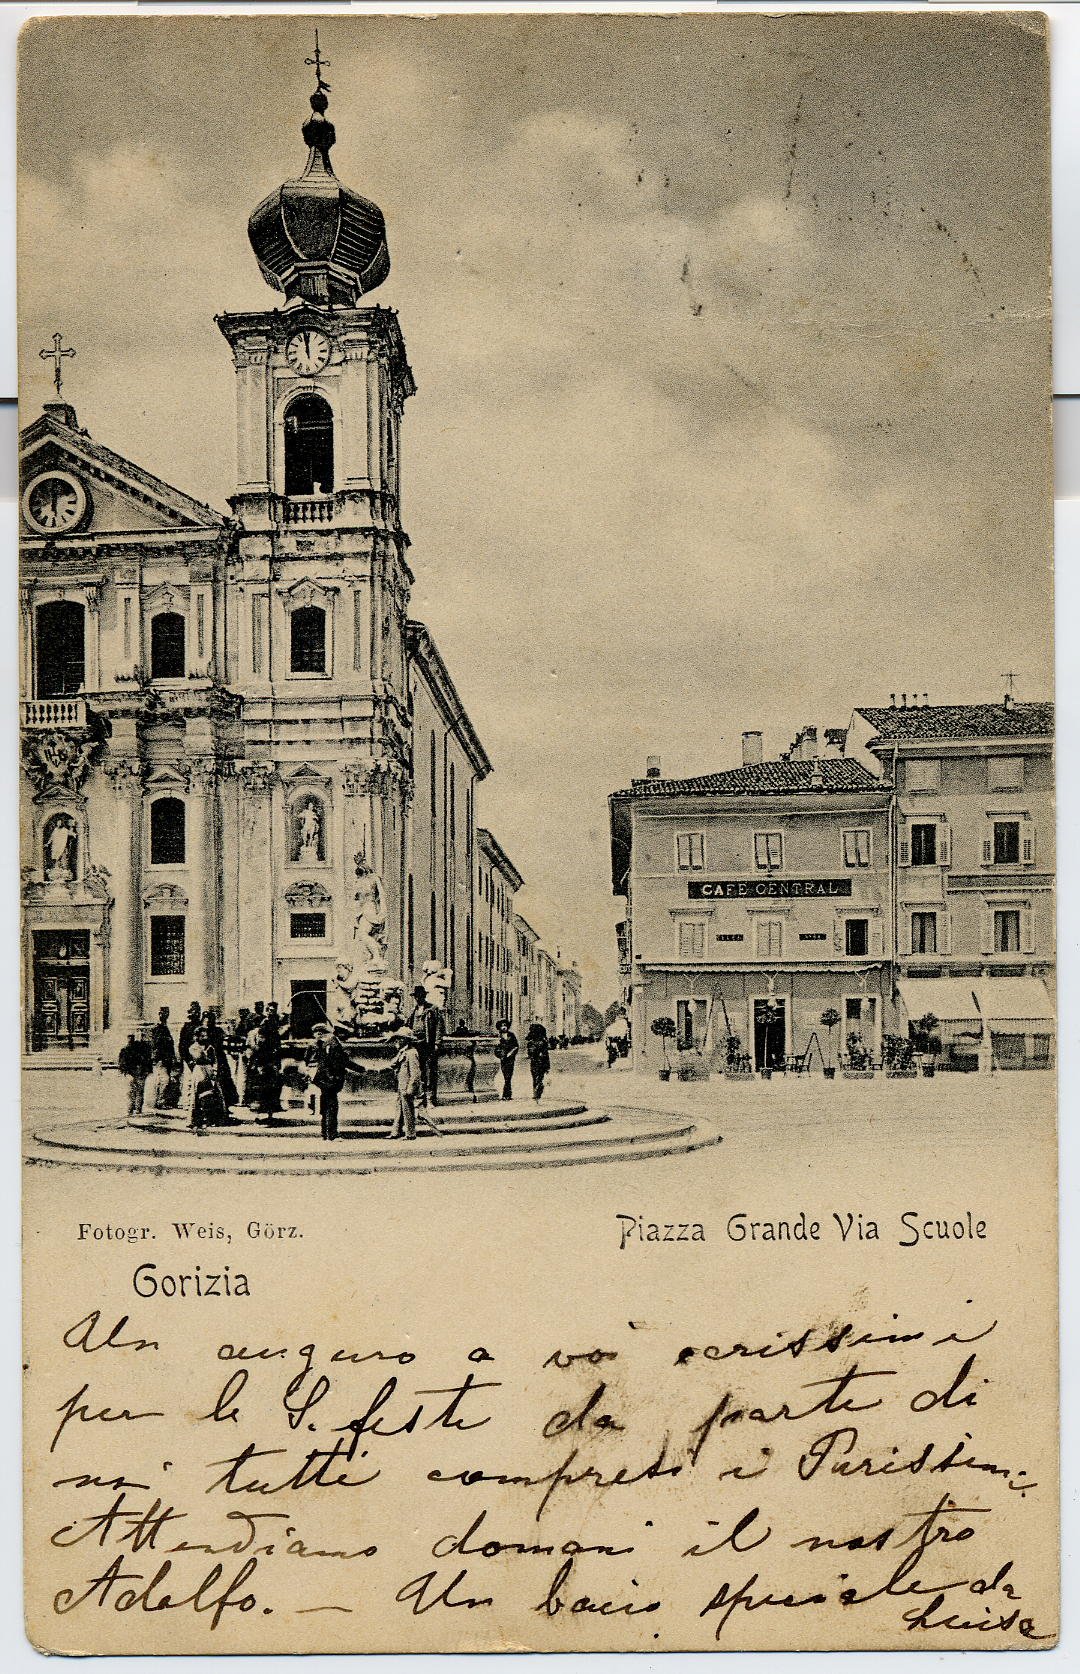 CAFE CENTRAL
Fotogr. Weis, Görz.
Piazza Grande Via Scuole
Gorizia
Un auguro a voi carissimi
per le S. feste da parte di
noi tutti compresi i Parissimi.
Attendiamo domani il nostro
Adolfo. — Un bacio speciale da
Luisa